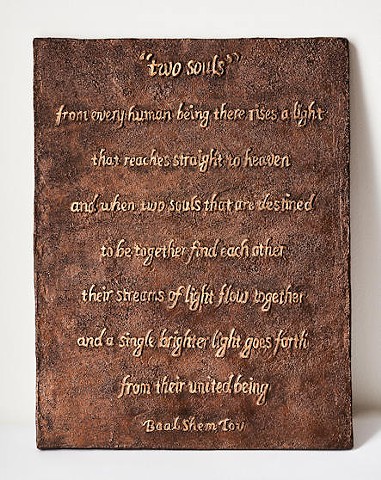 "two souls"
from every human being there rises a light
that reaches straight to heaven
and when two souls that are destined
to be together find each other
their streams of light flow together
and a single brighter light goes forth
from their united being
Baal Shem Tov